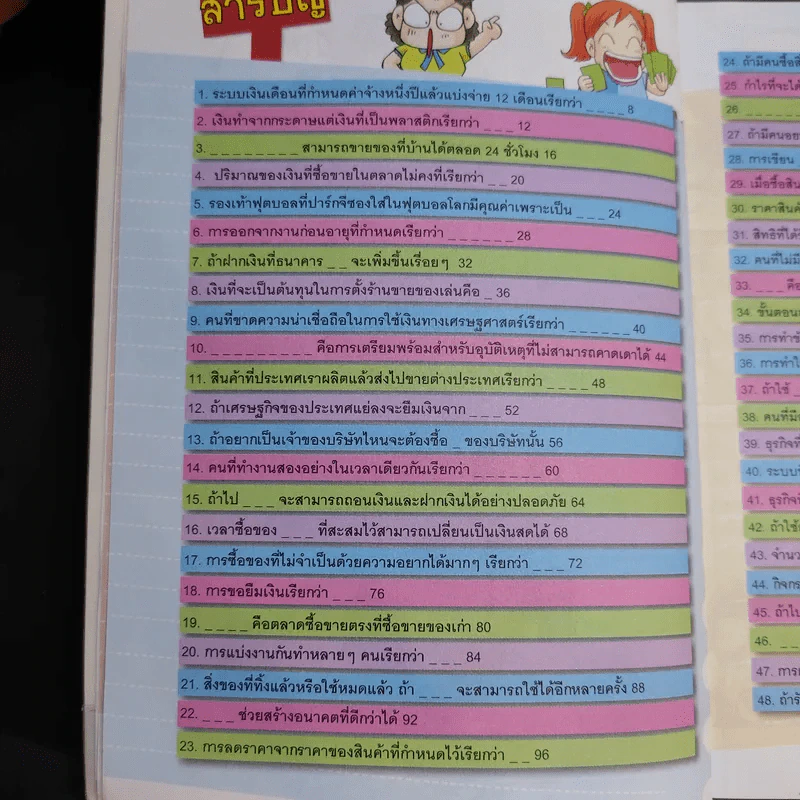 สารบัญ
1. ระบบเงินเดือนที่กำหนดค่าจ้างหนึ่งปีแล้วแบ่งจ่าย 12 เดือนเรียกว่า _ _ _ _ 8
2. เงินทำจากกระดาษแต่เงินที่เป็นพลาสติกเรียกว่า _ _ _ 12
3. _ _ _ _ _ _ _ _ สามารถขายของที่บ้านได้ตลอด 24 ชั่วโมง 16
4. ปริมาณของเงินที่ซื้อขายในตลาดไม่คงที่เรียกว่า _ _ 20
5. รองเท้าฟุตบอลที่ปาร์กจีซองใส่ในฟุตบอลโลกมีคุณค่าเพราะเป็น _ _ _ 24
6. การออกจากงานก่อนอายุที่กำหนดเรียกว่า _ _ _ _ _ _ 28
7. ถ้าฝากเงินที่ธนาคาร _ _ จะเพิ่มขึ้นเรื่อยๆ 32
8. เงินที่จะเป็นต้นทุนในการตั้งร้านขายของเล่นคือ _ 36
9. คนที่ขาดความน่าเชื่อถือในการใช้เงินทางเศรษฐศาสตร์เรียกว่า _ _ _ _ _ _ 40
10. _ _ _ _ _ _ _ _ _ _ คือการเตรียมพร้อมสำหรับอุบัติเหตุที่ไม่สามารถคาดเดาได้ 44
11. สินค้าที่ประเทศเราผลิตแล้วส่งไปขายต่างประเทศเรียกว่า _ _ _ _ 48
12. ถ้าเศรษฐกิจของประเทศแย่ลงจะยืมเงินจาก _ _ _ 52
13. ถ้าอยากเป็นเจ้าของบริษัทไหนจะต้องซื้อ _ ของบริษัทนั้น 56
14. คนที่ทำงานสองอย่างในเวลาเดียวกันเรียกว่า _ _ _ _ _ _ 60
15. ถ้าไป _ _ _ จะสามารถถอนเงินและฝากเงินได้อย่างปลอดภัย 64
16. เวลาซื้อของ _ _ _ ที่สะสมไว้สามารถเปลี่ยนเป็นเงินสดได้ 68
17. การซื้อของที่ไม่จำเป็นด้วยความอยากได้มากๆ เรียกว่า _ _ _ 72
18. การขอยืมเงินเรียกว่า _ _ _ 76
19. _ _ _ _ คือตลาดซื้อขายตรงที่ซื้อขายของเก่า 80
20. การแบ่งงานกันทำหลายๆ คนเรียกว่า _ _ _ 84
21. สิ่งของที่ทิ้งแล้วหรือใช้หมดแล้ว ถ้า _ _ _ จะสามารถใช้ได้อีกหลายครั้ง 88
22. _ _ _ ช่วยสร้างอนาคตที่ดีกว่าได้ 92
23. การลดราคาจากราคาของสินค้าที่กำหนดไว้เรียกว่า _ _ 96
24. ถ้ามีคนซื้อ
25. กำไรที่จะได้
26. _ _ _ _ _ _
27. ถ้ามีคน
28. การเขียน
29. เมื่อซื้อ
30. ราคาสินค้
31. สิทธิที่ได้
32. คนที่ไม่มี
33. _ _ _ คือ
34. ขั้นตอน
35. การทำ
36. การทำ
37. ถ้าใช้ _
38. คนที่มี
39. ธุรกิจที่
40. ระบบ
41. ธุรกิจ
42. ถ้าใช้
43. จำนว
44. กิจกร
45. ถ้าไป
46. _ _
47. การ
48. ถ้า